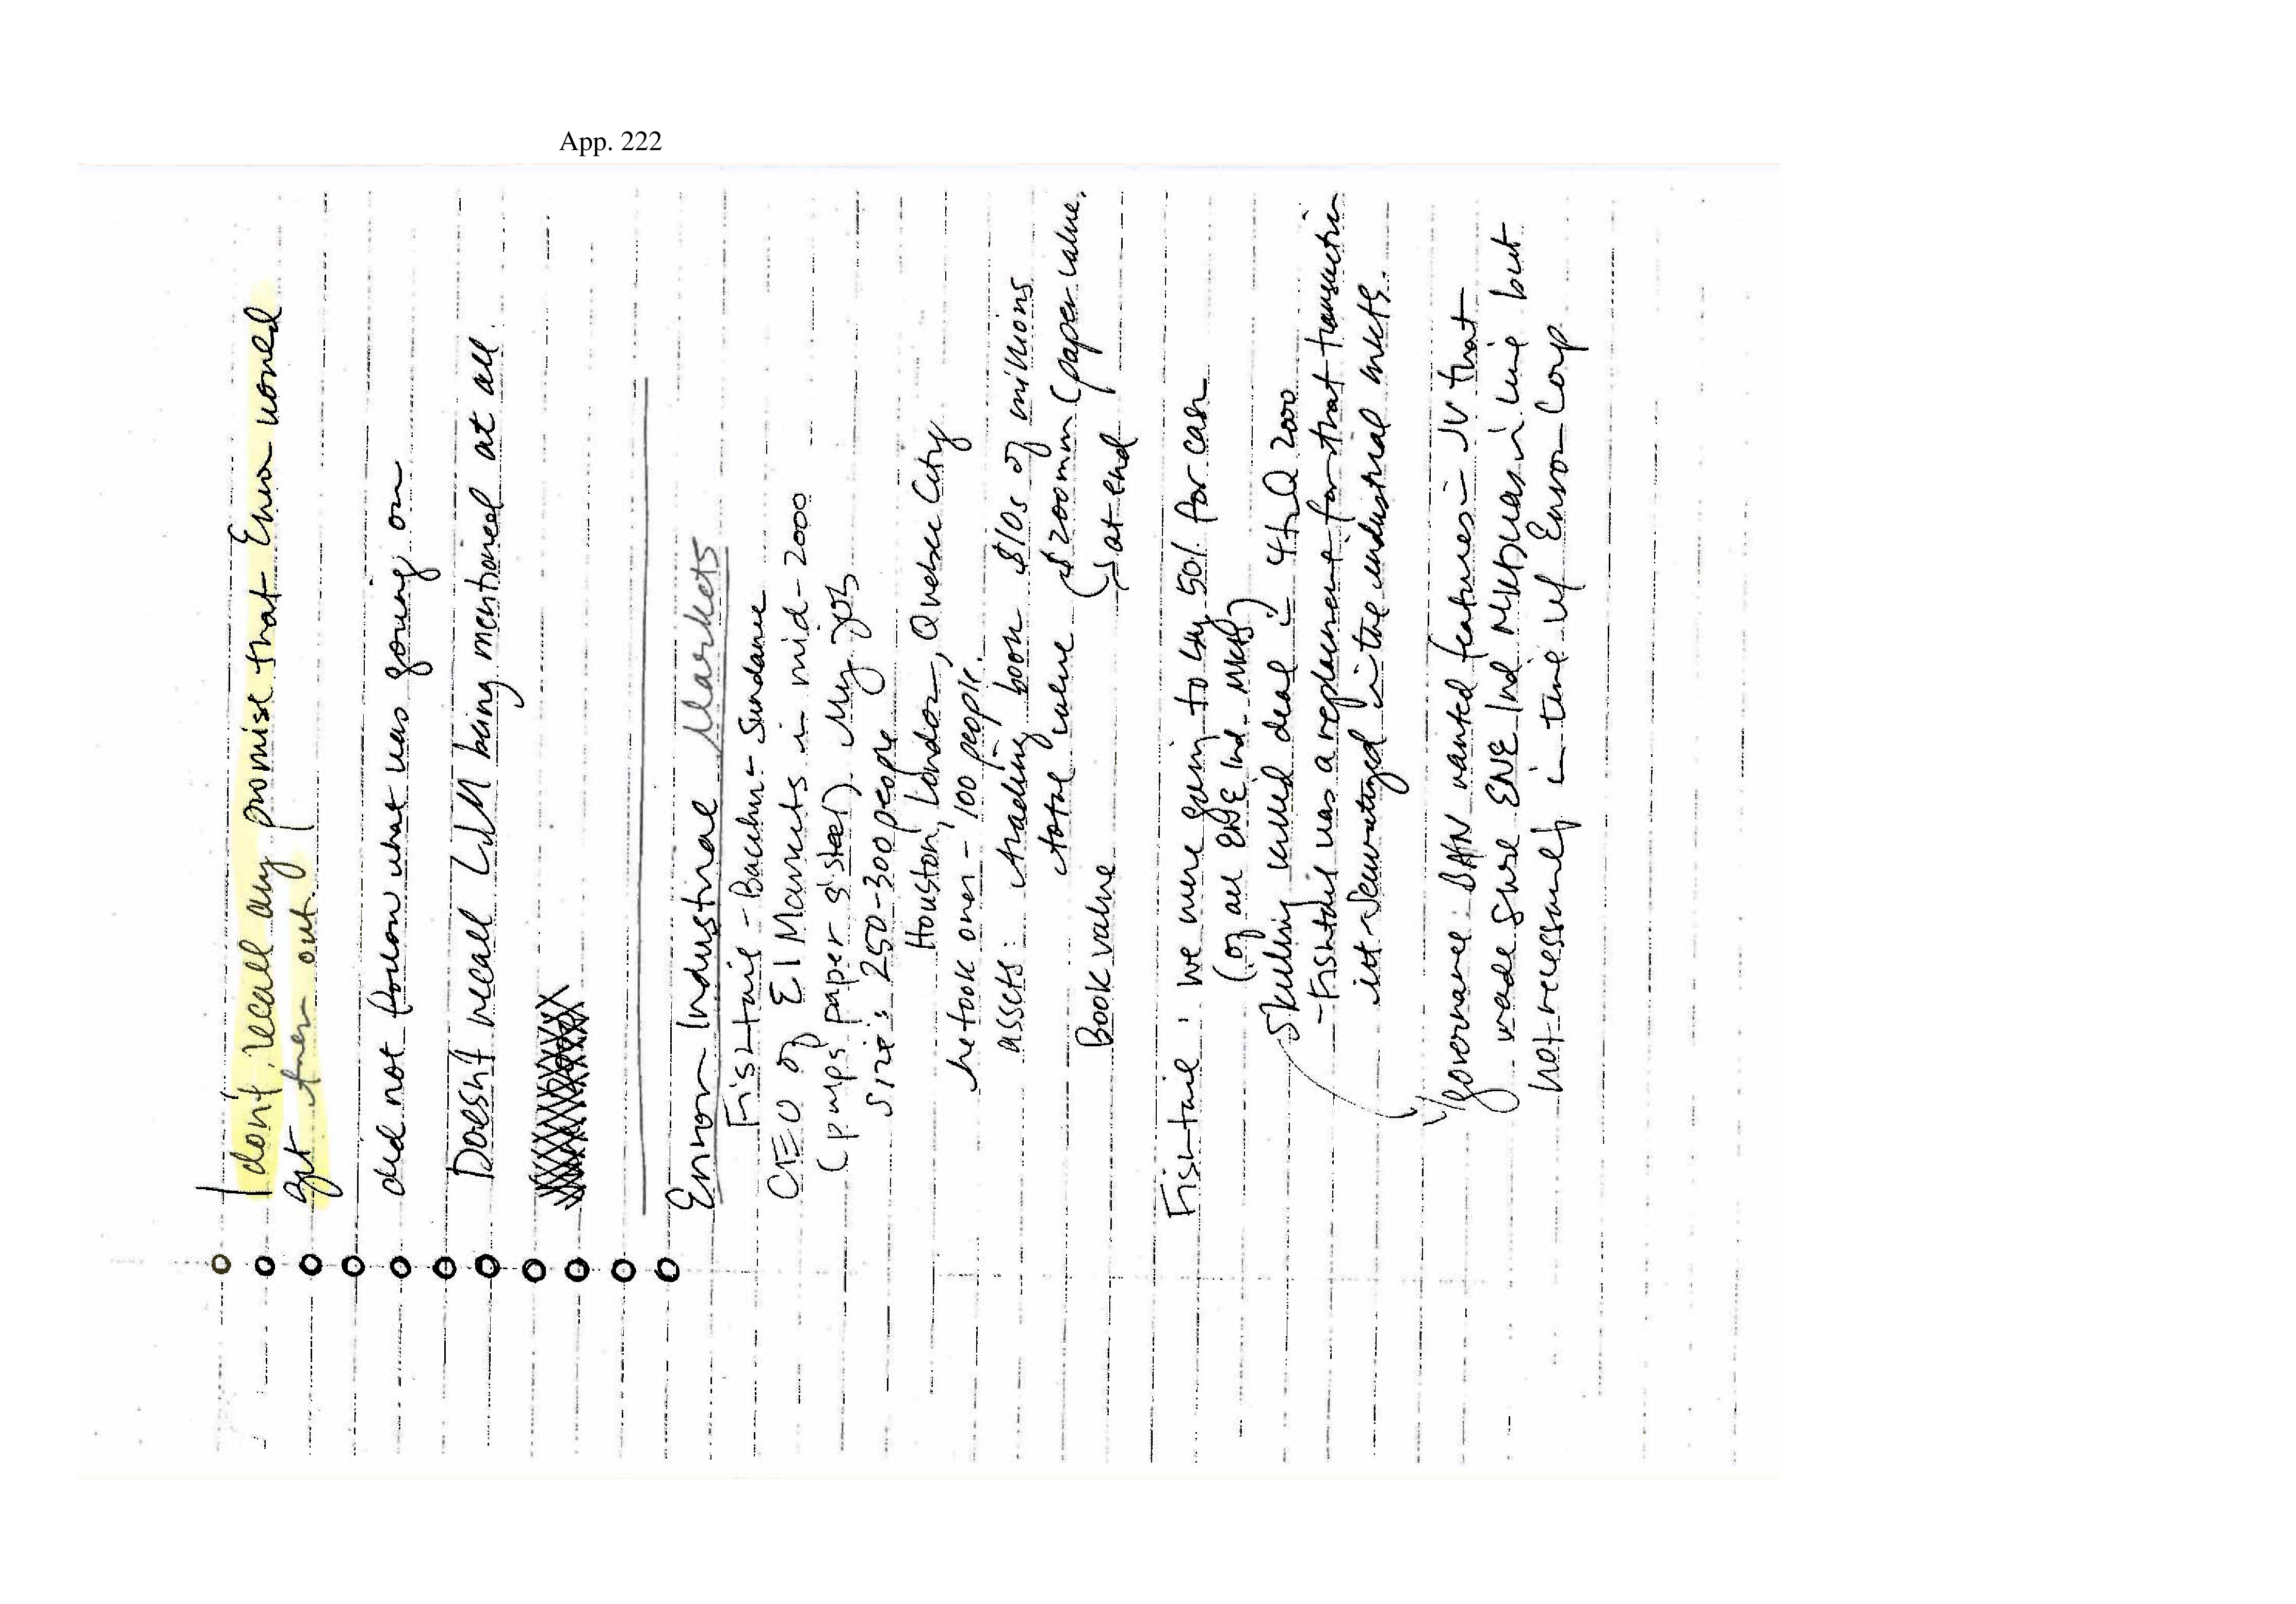 App. 222
I don't recall any promise that Enron would
get them out.
did not follow what was going on
Doesn't recall LJM being mentioned at all.
Enron Industrial Markets
Fishtail - Bacchus - Sundance
CEO of EI Markets in mid-2000
(pulp, paper & steel). Mrg
Size: 250-300 people
Houston, London, Quebec City
he took over - 100 people.
assets: trading book $10s of millions
total value $200mm (paper value,
at end
Book value
Fishtail: we were going to buy 50% for cash
(of all ENE Ind. Mkts)
Skilling killed deal in 4th Q 2000
- Fishtail was a replacement for that transaction
it securitized in the industrial mkts.
governance: wanted features in JV that
made sure ENE Ind Mkts in line but
not necessarily in tune w/ Enron Corp